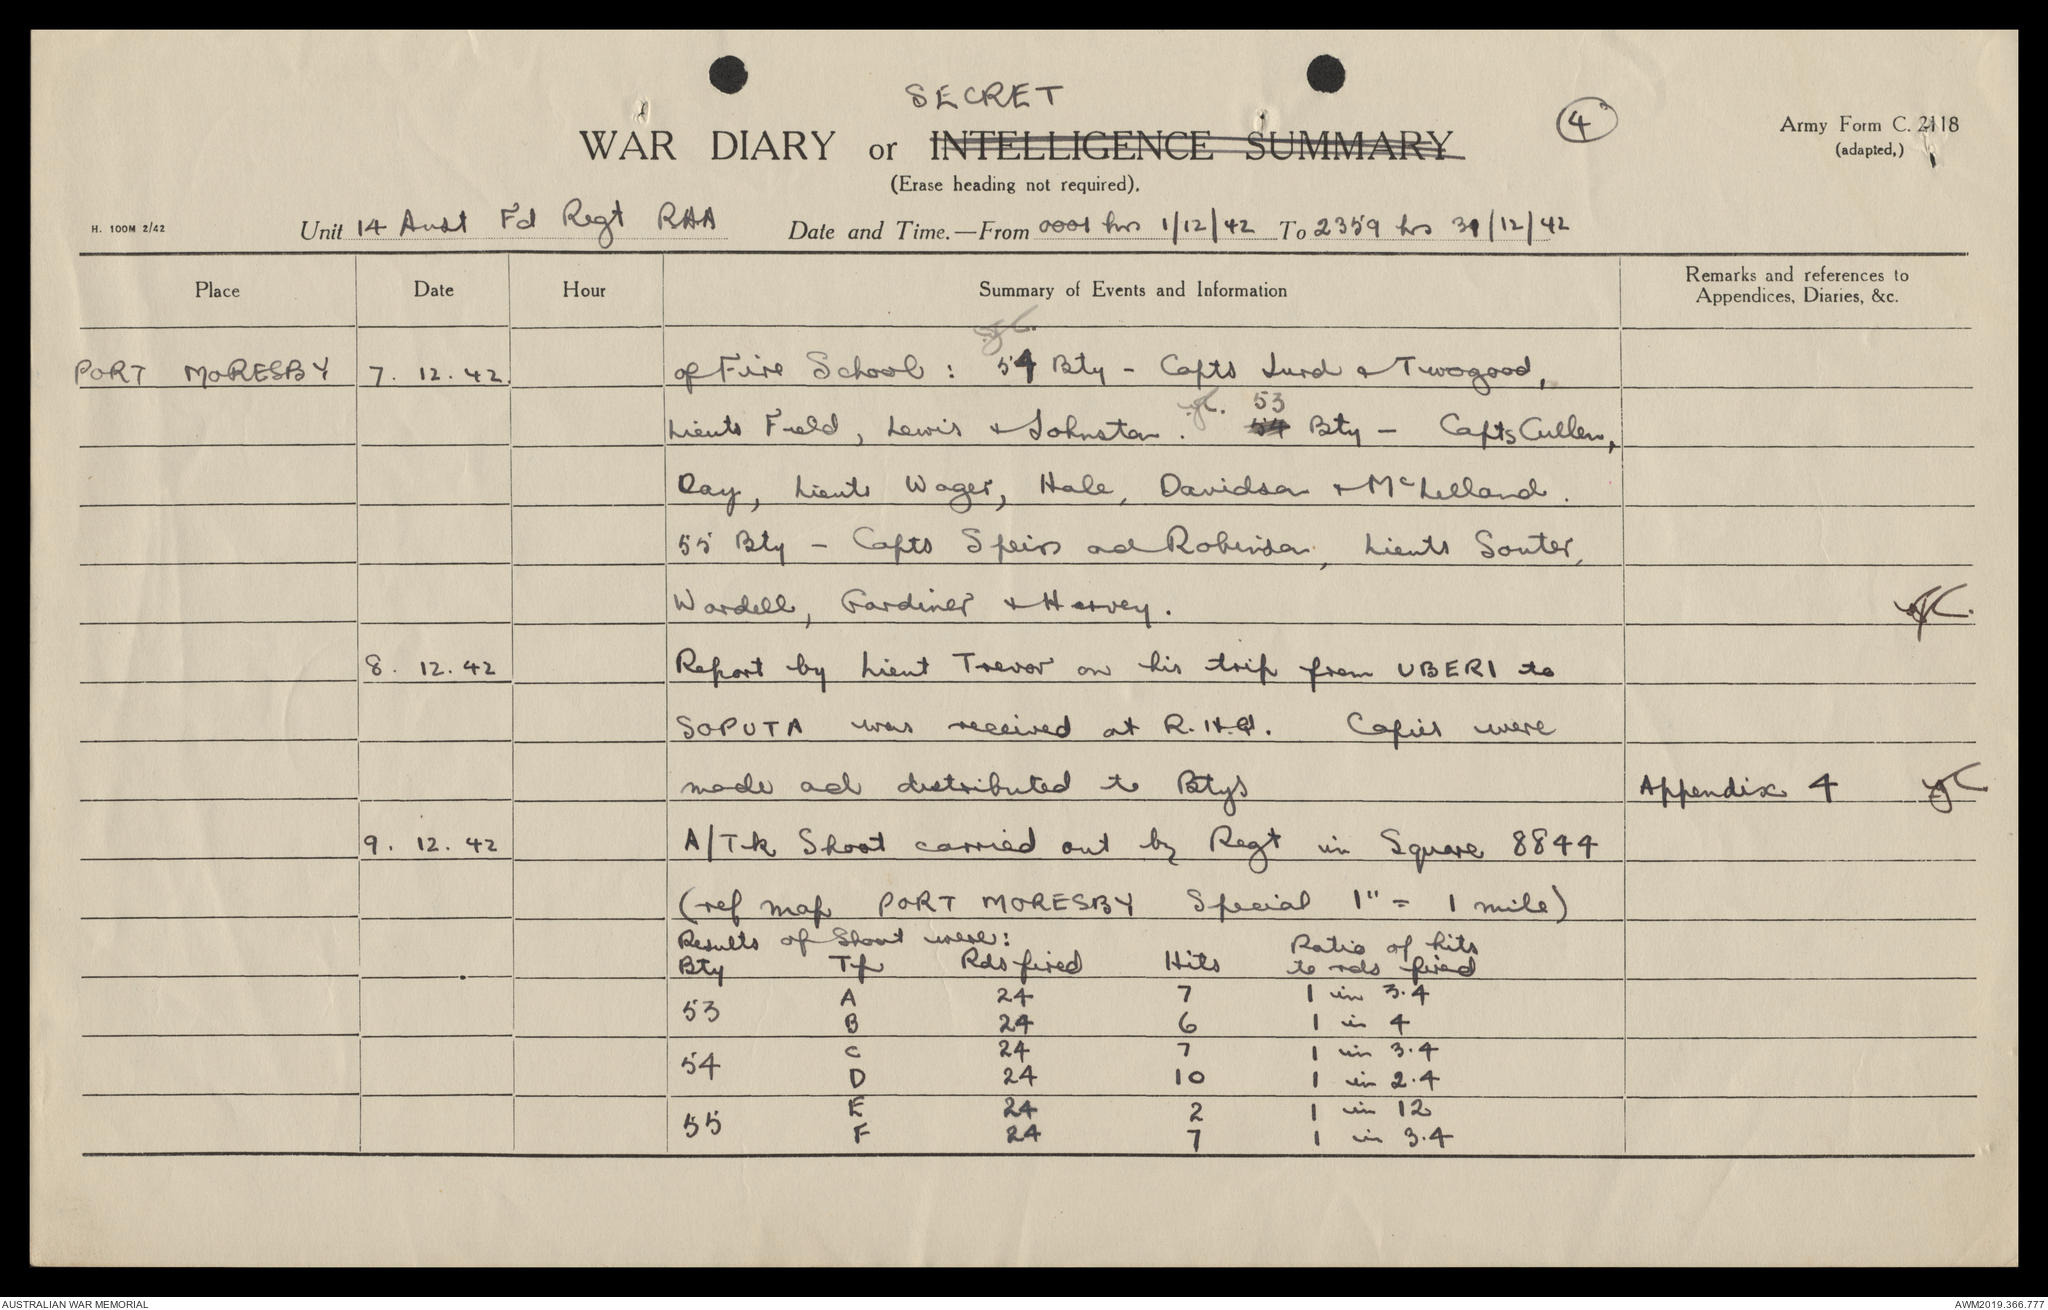 SECRET
4
WAR DIARY or INTELLIGENCE SUMMARY
(Erase heading not required).
Army Form C. 2118
(adapted,)
H. 100M 2/42
Unit 14 Aust Fd Regt RAA Date and Time.—From 0001 hrs 1/12/42 To 2359 hrs 31/12/42
Place Date Hour Summary of Events and Information Remarks and references to
Appendices, Diaries, &c.
PORT MORESBY 7. 12. 42 of Fire School : 54 Bty - Capts Lurd & Twogood,
Lieuts Field, Lewis & Johnston. 53 54 Bty - Capts Cullen,
Day, Lieuts Wager, Hale, Davidson & McLelland.
55 Bty - Capts Speirs ad Robinson, Lieuts Souter,
Wardell, Gardiner & Harvey.
8. 12. 42 Report by Lieut Trevor on his trip from UBERI to
SOPUTA was received at R.H.Q. Copies were
made ad distributed to Btys Appendix 4
9. 12. 42 A/Tk Shoot carried out by Regt in Square 8844
(ref map PORT MORESBY Special 1" = 1 mile)
Results of Shoot were:
Bty Tp Rds fired Hits Ratio of hits
to rds fired
53 A 24 7 1 in 3.4
B 24 6 1 in 4
54 C 24 7 1 in 3.4
D 24 10 1 in 2.4
55 E 24 2 1 in 12
F 24 7 1 in 3.4
AUSTRALIAN WAR MEMORIAL
AWM2019.366.777